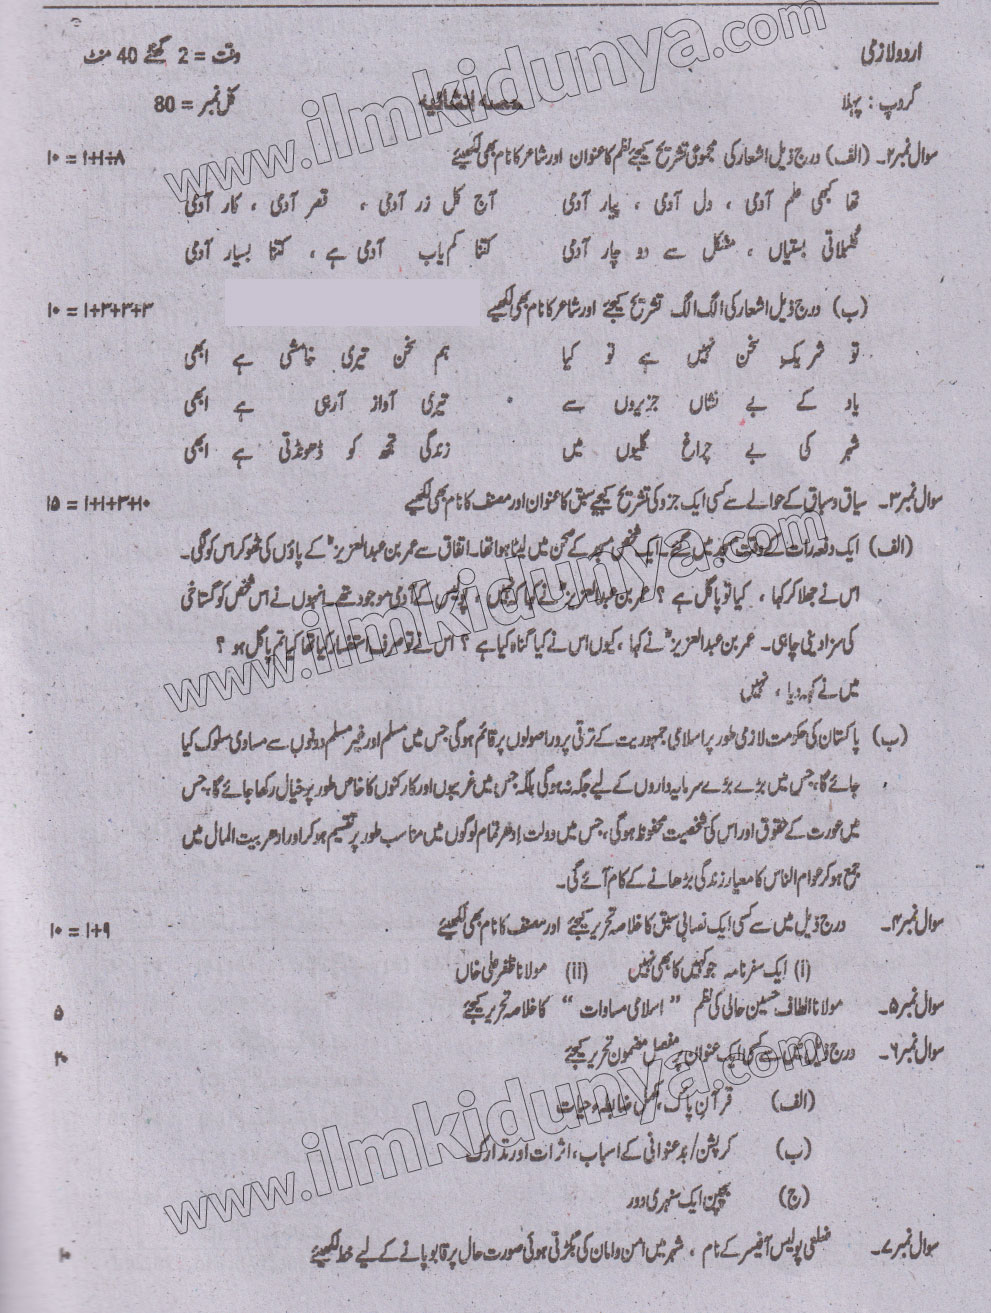 اردو لازمی
وقت = 2 گھنٹے 40 منٹ
گروپ : پہلا
حصہ انشائیہ
کل نمبر = 80
سوال نمبر ۲۔ (الف) درج ذیل اشعار کی مجموعی تشریح کیجئے نظم کا عنوان اور شاعر کا نام بھی لکھیئے ۸+۱+۱ = ۱۰
تھا کبھی علم آدمی ، دل آدمی ، پیار آدمی آج کل زر آدمی ، قصر آدمی ، کار آدمی
کلبلاتی بستیاں ، مشکل سے دو چار آدمی کتنا کم یاب آدمی ہے ، کتنا بسیار آدمی
(ب) درج ذیل اشعار کی الگ الگ تشریح کیجئے اور شاعر کا نام بھی لکھیے ۳+۳+۳+۱ = ۱۰
تو شریک سخن نہیں ہے تو کیا ہم سخن تیری خامشی ہے ابھی
یاد کے بے نشاں جزیروں سے تیری آواز آرہی ہے ابھی
شہر کی بے چراغ گلیوں میں زندگی تجھ کو ڈھونڈتی ہے ابھی
سوال نمبر ۳۔ سیاق و سباق کے حوالے سے کسی ایک جزو کی تشریح کیجیے سبق کا عنوان اور مصنف کا نام بھی لکھیے ۱۰+۳+۱+۱ = ۱۵
(الف) ایک دفعہ رات کے وقت مسجد میں گئے۔ ایک شخص مسجد کے صحن میں لیٹا ہوا تھا۔ اتفاق سے عمر بن عبدالعزیزؒ کے پاؤں کی ٹھوکر اس کو لگی۔
اس نے جھلا کر کہا ، کیا تو پاگل ہے ؟ عمر بن عبدالعزیزؒ نے کہا کہ نہیں ، پولیس کے آدمی موجود تھے۔ انہوں نے اس شخص کو گستاخی
کی سزا دینی چاہی۔ عمر بن عبدالعزیزؒ نے کہا ، کیوں اس نے کیا گناہ کیا ہے ؟ اس نے تو صرف استفسار کیا تھا کیا تم پاگل ہو ؟
میں نے کہہ دیا ، نہیں
(ب) پاکستان کی حکومت لازمی طور پر اسلامی جمہوریت کے ترقی پرور اصولوں پر قائم ہوگی جس میں مسلم اور غیر مسلم دونوں سے مساوی سلوک کیا
جائے گا، جس میں بڑے بڑے سرمایہ داروں کے لیے جگہ نہ ہوگی بلکہ جس میں غریبوں اور کارکنوں کا خاص طور پر خیال رکھا جائے گا، جس
میں عورت کے حقوق اور اس کی شخصیت محفوظ ہوگی، جس میں دولت ادھر تمام لوگوں میں مناسب طور پر تقسیم ہوکر اور ادھر بیت المال میں
جمع ہوکر عوام الناس کا معیار زندگی بڑھانے کے کام آئے گی۔
سوال نمبر ۴۔ درج ذیل میں سے کسی ایک نصابی سبق کا خلاصہ تحریر کیجئے اور مصنف کا نام بھی لکھیئے ۹+۱ = ۱۰
(i) ایک سفرنامہ جو کہیں کا بھی نہیں (ii) مولانا ظفر علی خاں
سوال نمبر ۵۔ مولانا الطاف حسین حالی کی نظم "اسلامی مساوات" کا خلاصہ تحریر کیجئے ۵
سوال نمبر ۶۔ درج ذیل میں سے کسی ایک عنوان پر مفصل مضمون تحریر کیجئے ۲۰
(الف) قرآن پاک، مکمل ضابطہء حیات
(ب) کرپشن/بدعنوانی کے اسباب، اثرات اور تدارک
(ج) بچپن ایک سنہری دور
سوال نمبر ۷۔ ضلعی پولیس آفیسر کے نام ، شہر میں امن و امان کی بگڑتی ہوئی صورت حال پر قابو پانے کے لیے خط لکھیئے ۱۰
www.ilmkidunya.com
www.ilmkidunya.com
www.ilmkidunya.com